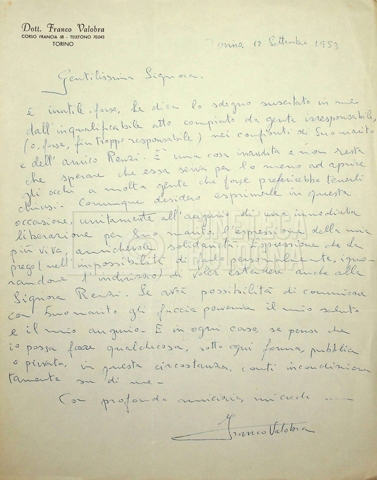 Dott. Franco Valobra
CORSO FRANCIA 68 - TELEFONO 70245
TORINO
12 Settembre 1953
Gentilissima Signora,
È inutile, forse, Le dica lo sdegno suscitato in me
dall'inqualificabile atto compiuto da gente irresponsabile
(o, forse, fin troppo responsabile) nei confronti di Suo marito
e dell'amico Renzi. È una cosa inaudita e non resta
che sperare che essa serva per lo meno ad aprire
gli occhi a molta gente che forse preferirebbe tenerli
chiusi. Comunque desidero esprimerle in questa
occasione, unitamente all'augurio di una immediata
liberazione per Suo marito, l'espressione della mia
più viva, amichevole solidarietà. Espressione che La
prego (nell'impossibilità di farlo personalmente, igno-
randone l'indirizzo) di voler estendere anche alla
Signora Renzi. Se avrà possibilità di comunicare
con Suo marito gli faccia pervenire il mio saluto
e il mio augurio. E in ogni caso, se pensa che
io possa fare qualchecosa, sotto ogni forma, pubblica
o privata, in questa circostanza, conti incondiziona
tamente su di me.
Con profonda amicizia,
Franco Valobra